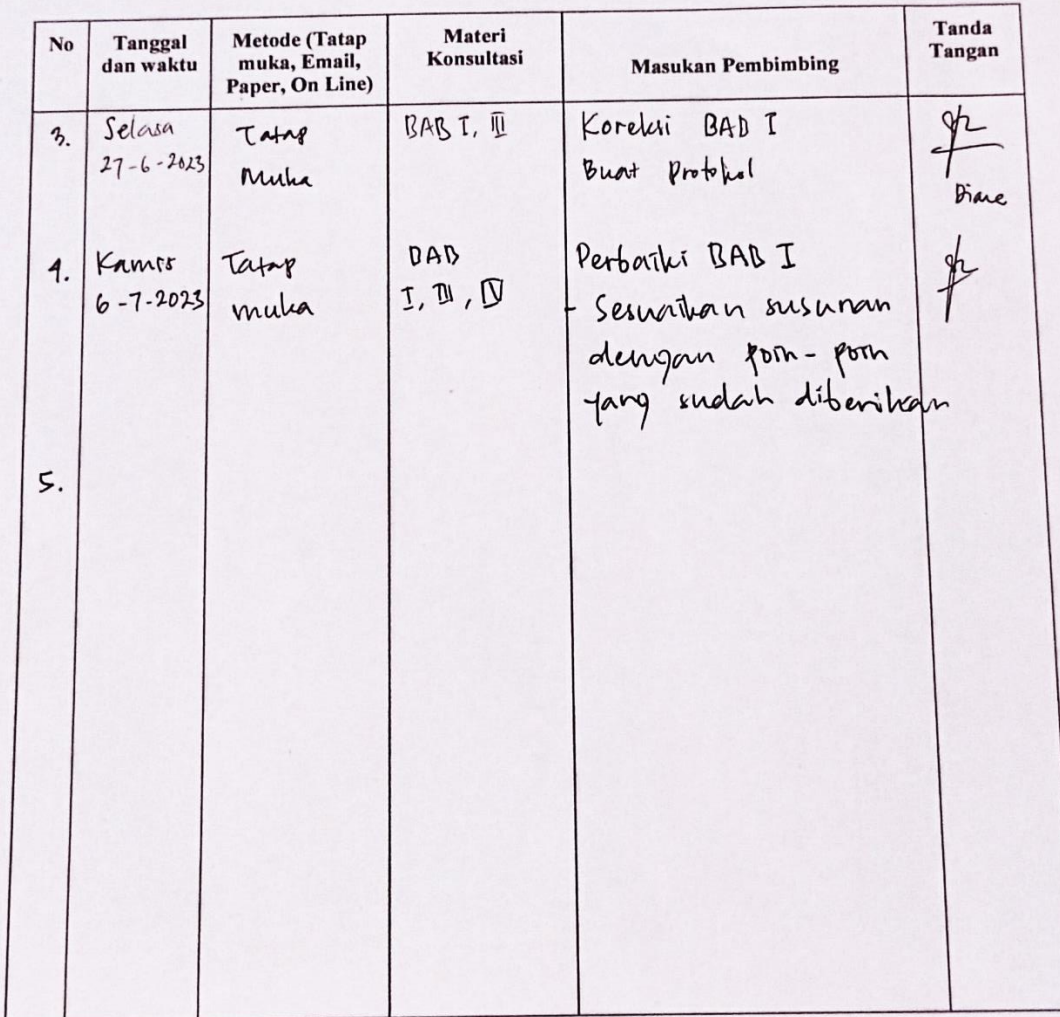 No
Tanggal
dan waktu
Metode (Tatap
muka, Email,
Paper, On Line)
Materi
Konsultasi
Masukan Pembimbing
Tanda
Tangan
3.
Selasa
27-6-2023
Tatap
Muka
BAB I, III
Koreksi BAB I
Buat Protokol
4.
Kamis
6-7-2023
Tatap
muka
BAB
I, III, IV
Perbaiki BAB I
- Sesuaikan susunan
dengan poin-poin
yang sudah diberikan
5.